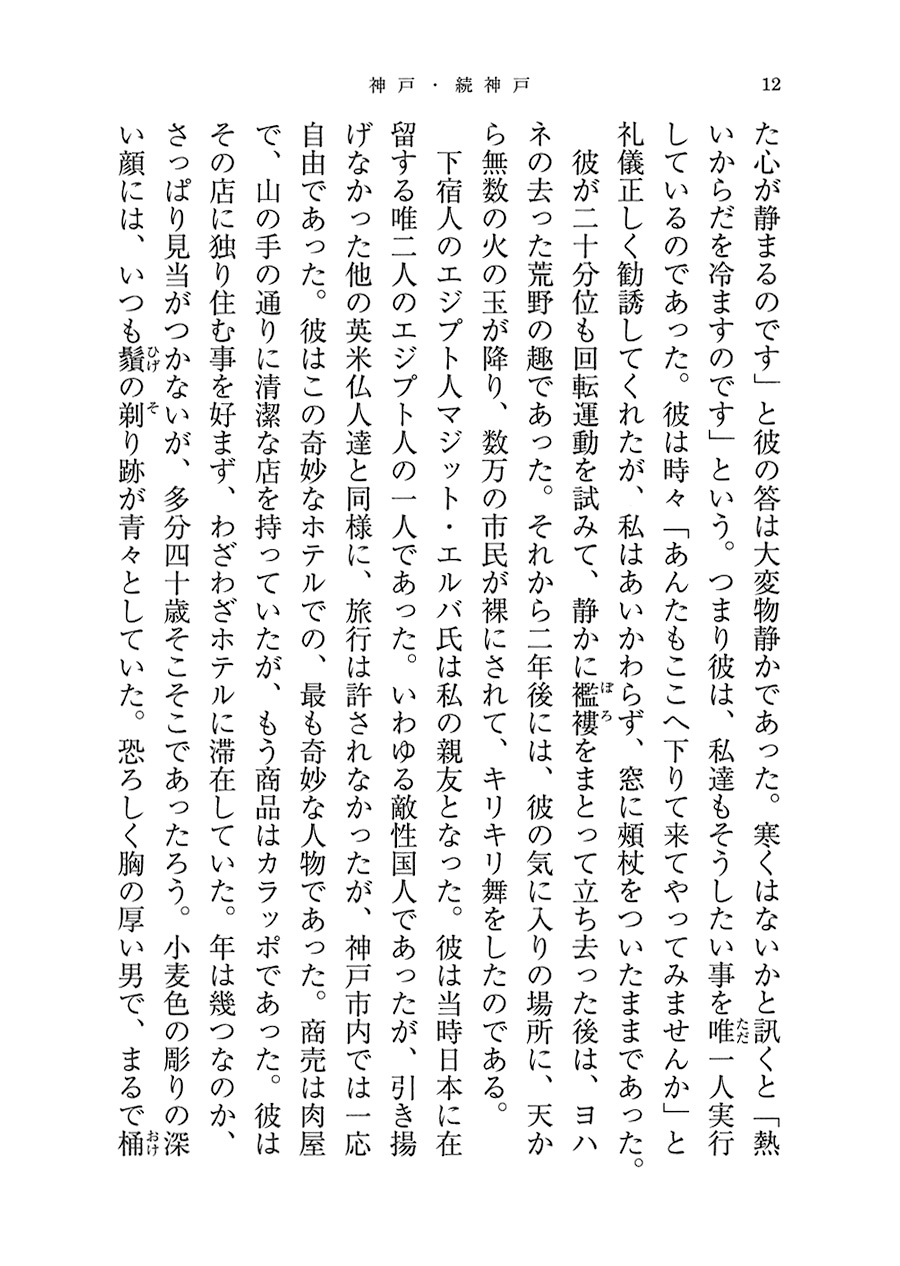 神戸・続神戸
12
た心が静まるのです」と彼の答は大変物静かであった。寒くはないかと訊くと「熱
いからだを冷ますのです」という。つまり彼は、私達もそうしたい事を唯一人実行
しているのであった。彼は時々「あんたもここへ下りて来てやってみませんか」と
礼儀正しく勧誘してくれたが、私はあいかわらず、窓に頰杖をついたままであった。
彼が二十分位も回転運動を試みて、静かに襤褸をまとって立ち去った後は、ヨハ
ネの去った荒野の趣であった。それから二年後には、彼の気に入りの場所に、天か
ら無数の火の玉が降り、数万の市民が裸にされて、キリキリ舞をしたのである。
下宿人のエジプト人マジット・エルバ氏は私の親友となった。彼は当時日本に在
留する唯二人のエジプト人の一人であった。いわゆる敵性国人であったが、引き揚
げなかった他の英米仏人達と同様に、旅行は許されなかったが、神戸市内では一応
自由であった。彼はこの奇妙なホテルでの、最も奇妙な人物であった。商売は肉屋
で、山の手の通りに清潔な店を持っていたが、もう商品はカラッポであった。彼は
その店に独り住む事を好まず、わざわざホテルに滞在していた。年は幾つなのか、
さっぱり見当がつかないが、多分四十歳そこそこであったろう。小麦色の彫りの深
い顔には、いつも鬚の剃り跡が青々としていた。恐ろしく胸の厚い男で、まるで桶
ただ
ぼろ
ひげ
そ
おけ